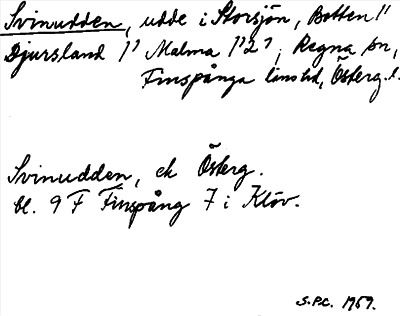 Svinudden, udde i Storsjön, Botten 1¹
Djursland 1¹ Malma 1¹2¹, Regna sn,
Finspånga länshd, Österg. l.
Svinudden, ek Österg.
bl. 9 F Finspång 7 i Klöv.
S.P.C. 1959.